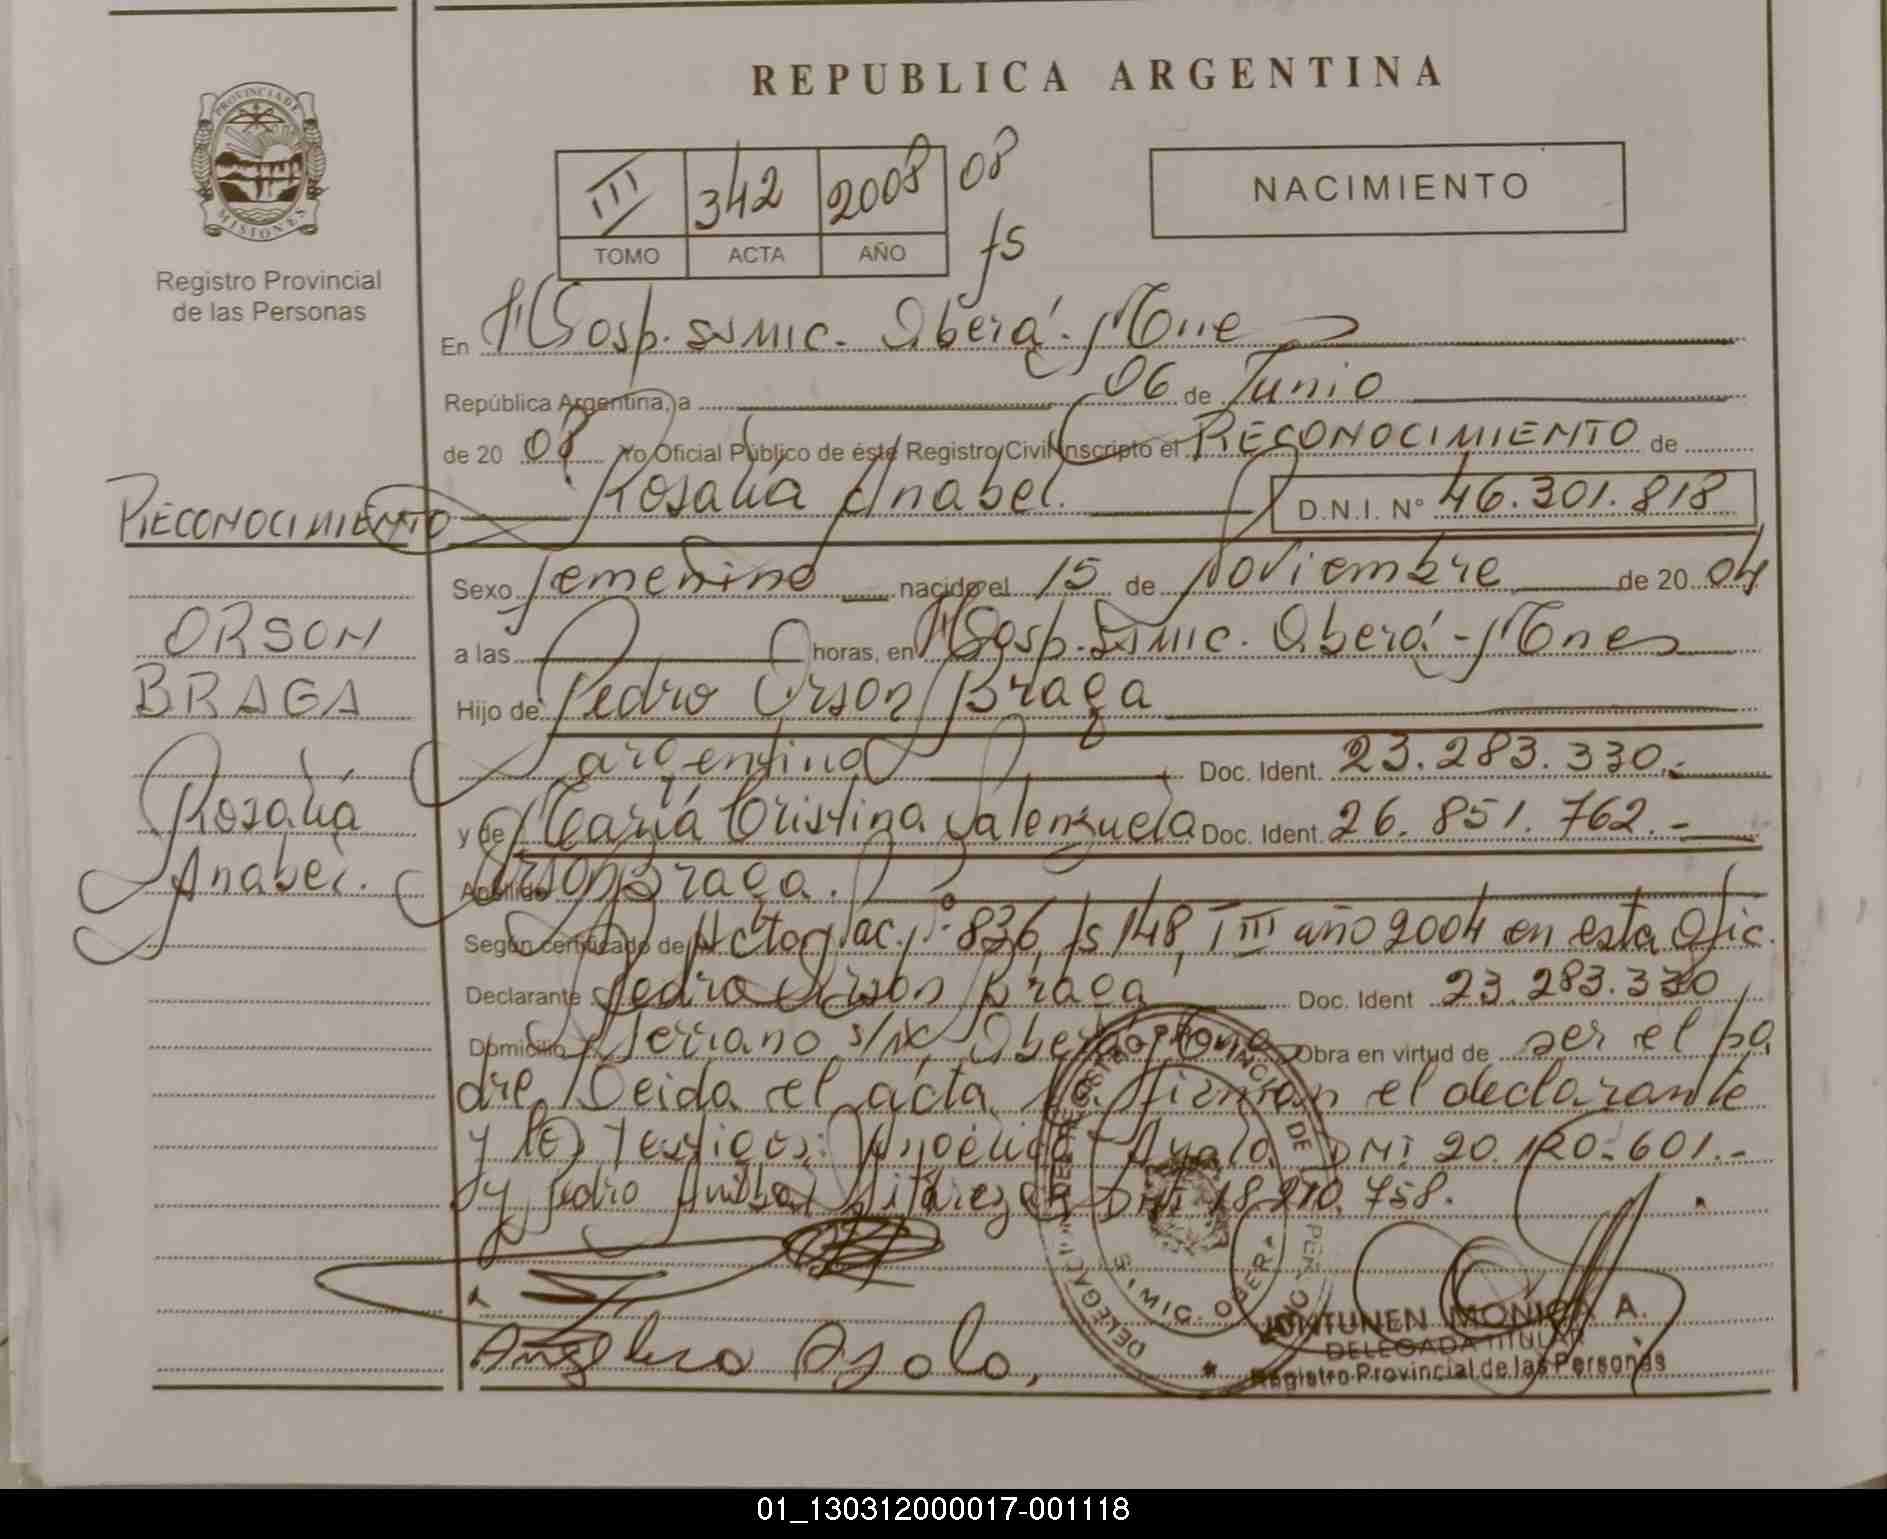 REPUBLICA ARGENTINA
PROVINCIA DE
MISIONES
Registro Provincial
de las Personas
III 342 2008 08
TOMO ACTA AÑO fs
NACIMIENTO
En Hosp. SSMIC. Oberá - Mnes
República Argentina, a 06 de Junio
de 20 08 Yo Oficial Público de éste Registro Civil Inscripto el RECONOCIMIENTO de
RECONOCIMIENTO
Rosalía Anabel. D.N.I. Nº 46.301.818
Sexo femenino nacido el 15 de noviembre de 20 04
a las horas, en Hosp. SSMIC. Oberá - Mnes
ORSON
BRAGA
Rosalía
Anabel.
Hijo de Pedro Orson Braga
argentino Doc. Ident. 23.283.330.-
y de María Cristina Valenzuela Doc. Ident. 26.851.762.-
Apellido Orson Braga.
Según certificado de Act. nac. Nº 836, fs 148, T III año 2004 en esta Ofic.
Declarante Pedro Orson Braga Doc. Ident 23.283.330
Domicilio Serrano s/n, Oberá Obra en virtud de ser el pa
dre Leida el acta la firman el declarante
y los Testigos: Ayala DNI 20.120.601.-
y Pedro Anibal DNI 18.270.758.
DELEGAC
S.S.MIC. OBERA
Ayala,
MONICA A.
DELEGADA TITULAR
Registro Provincial de las Personas
01_130312000017-001118